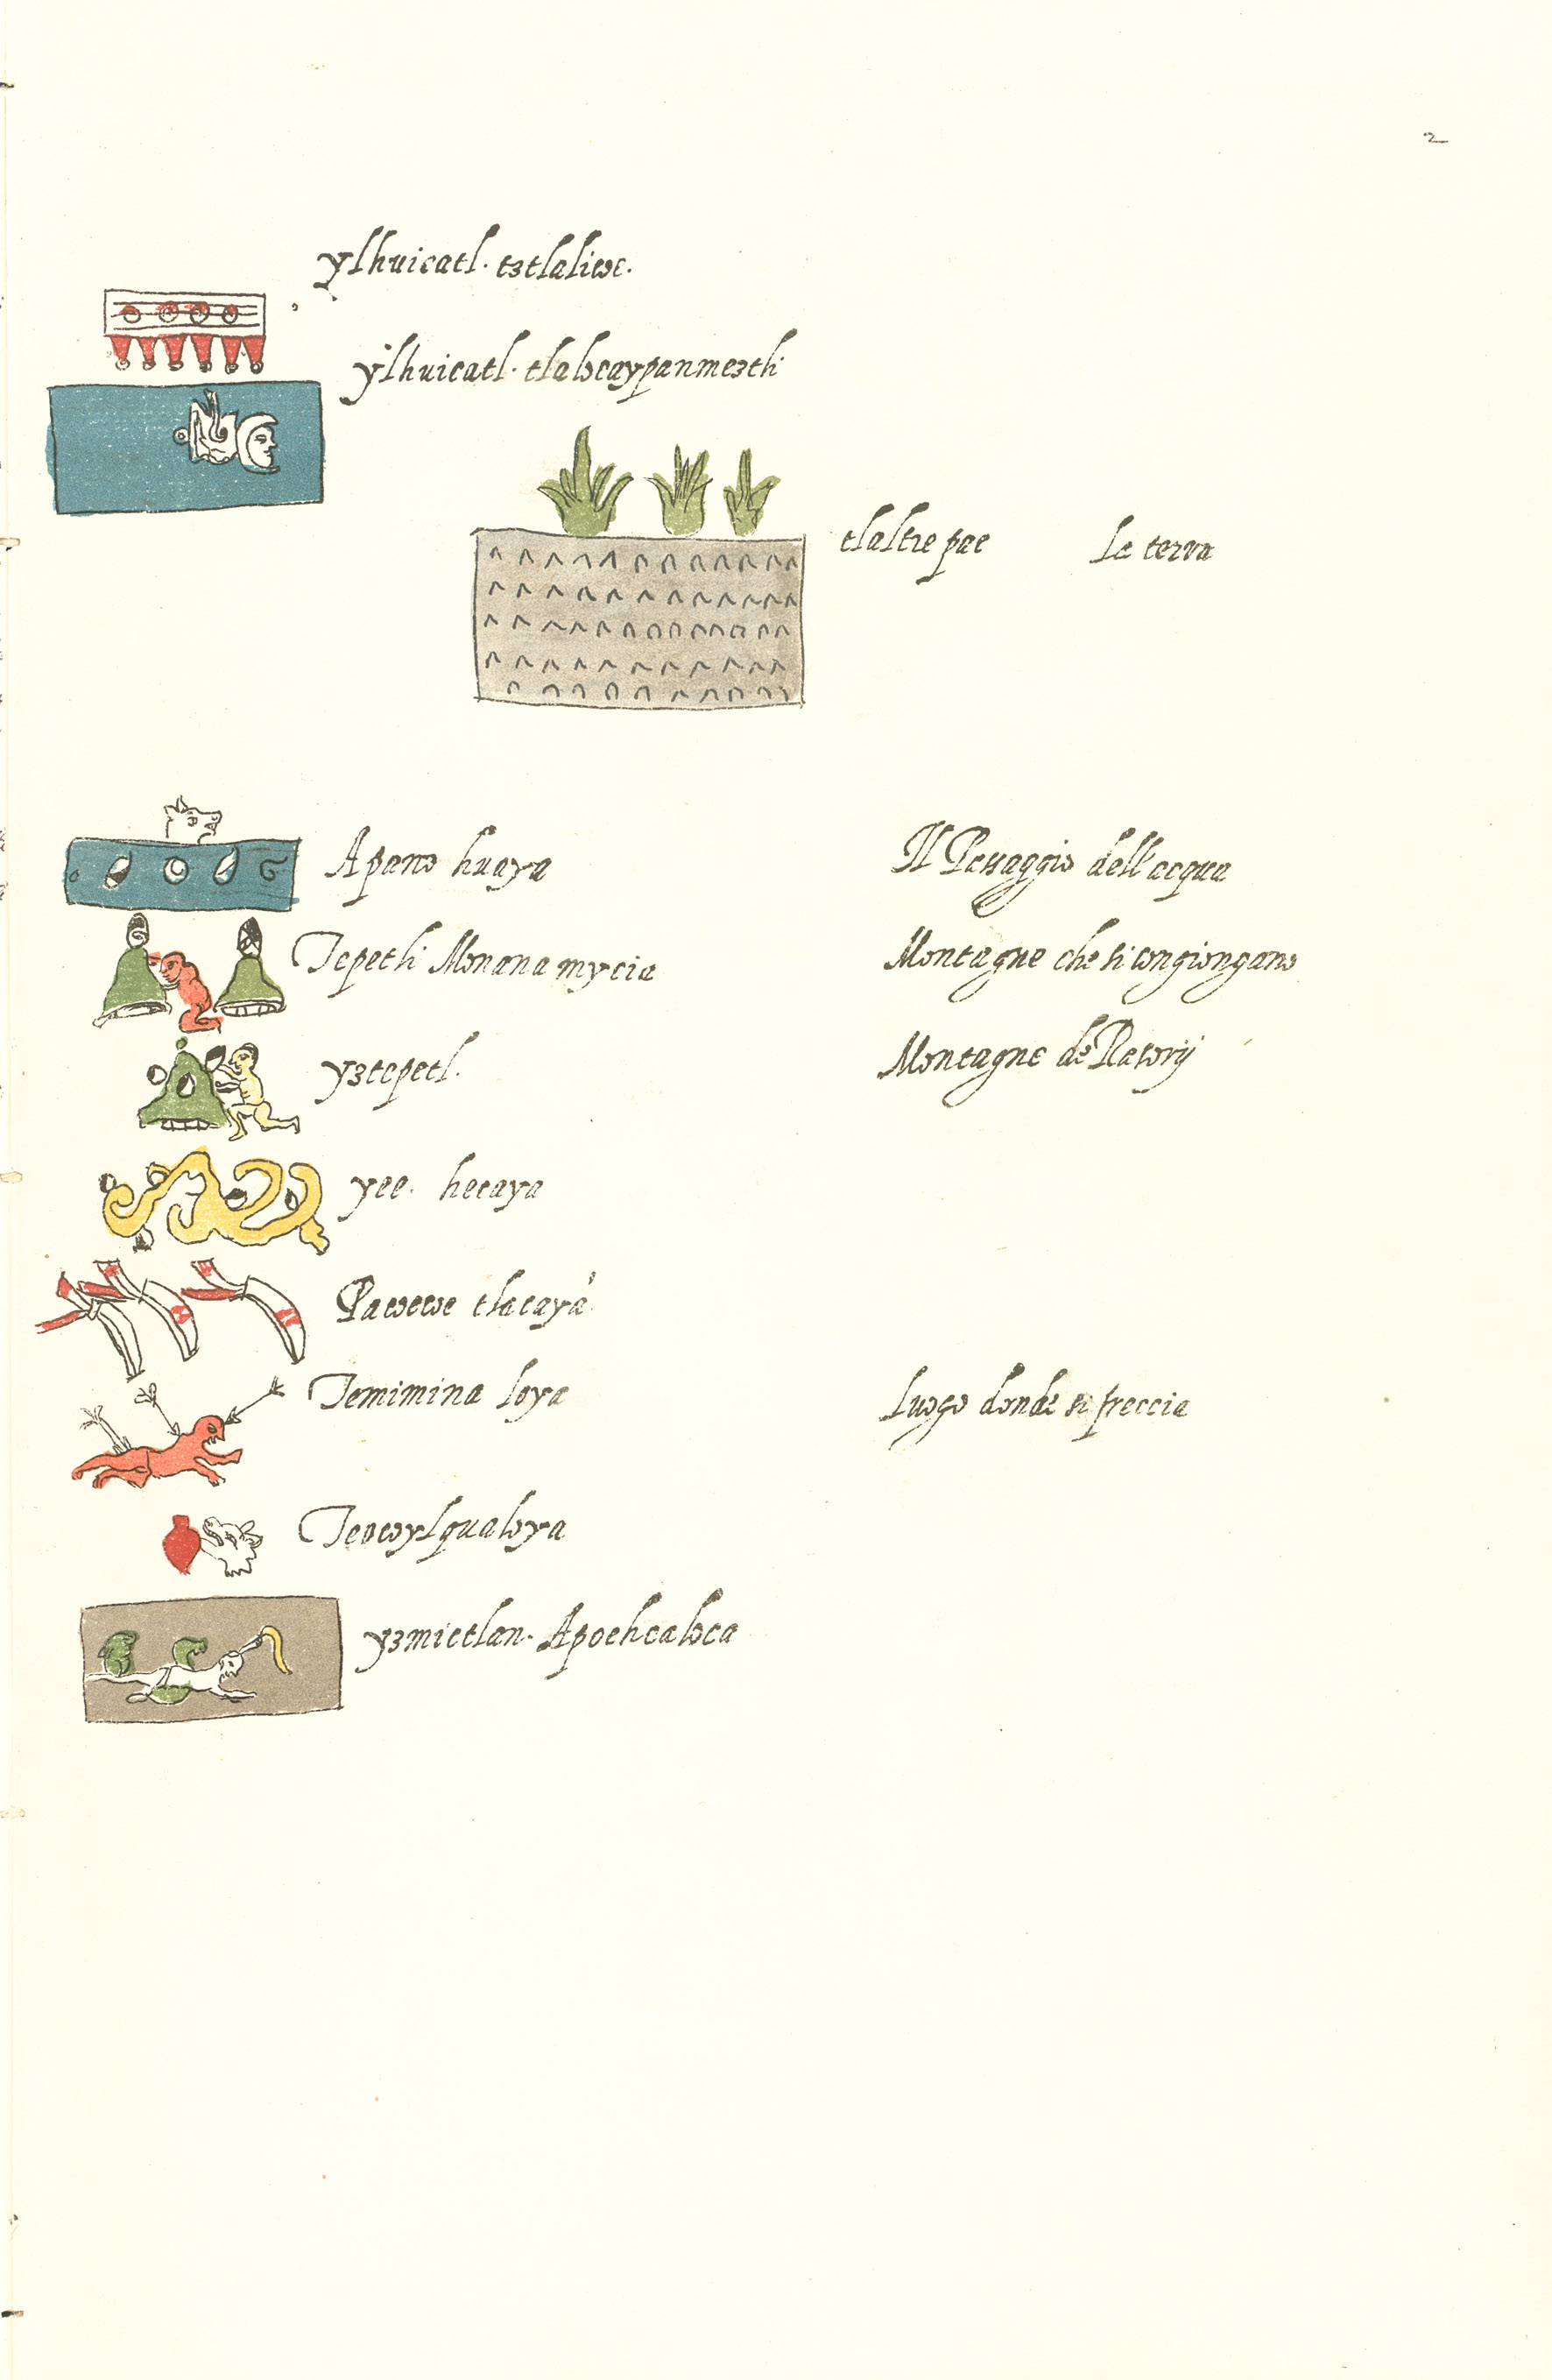 2
ylhuicatl. tztlalicoc.
ylhuicatl. tlalocaypanmeztli
tlalticpac La terra
Apano huaya Il Passaggio dell'acqua
Tepetli Monanamycia Montagne che si congiongano
yztepetl. Montagne de Rasorij
yee. hecaya
Pacoecoe tlacayá.
Temimina loya Luogo donde si freccia
Teocoylqualoya
yzmictlan. Apochcaloca